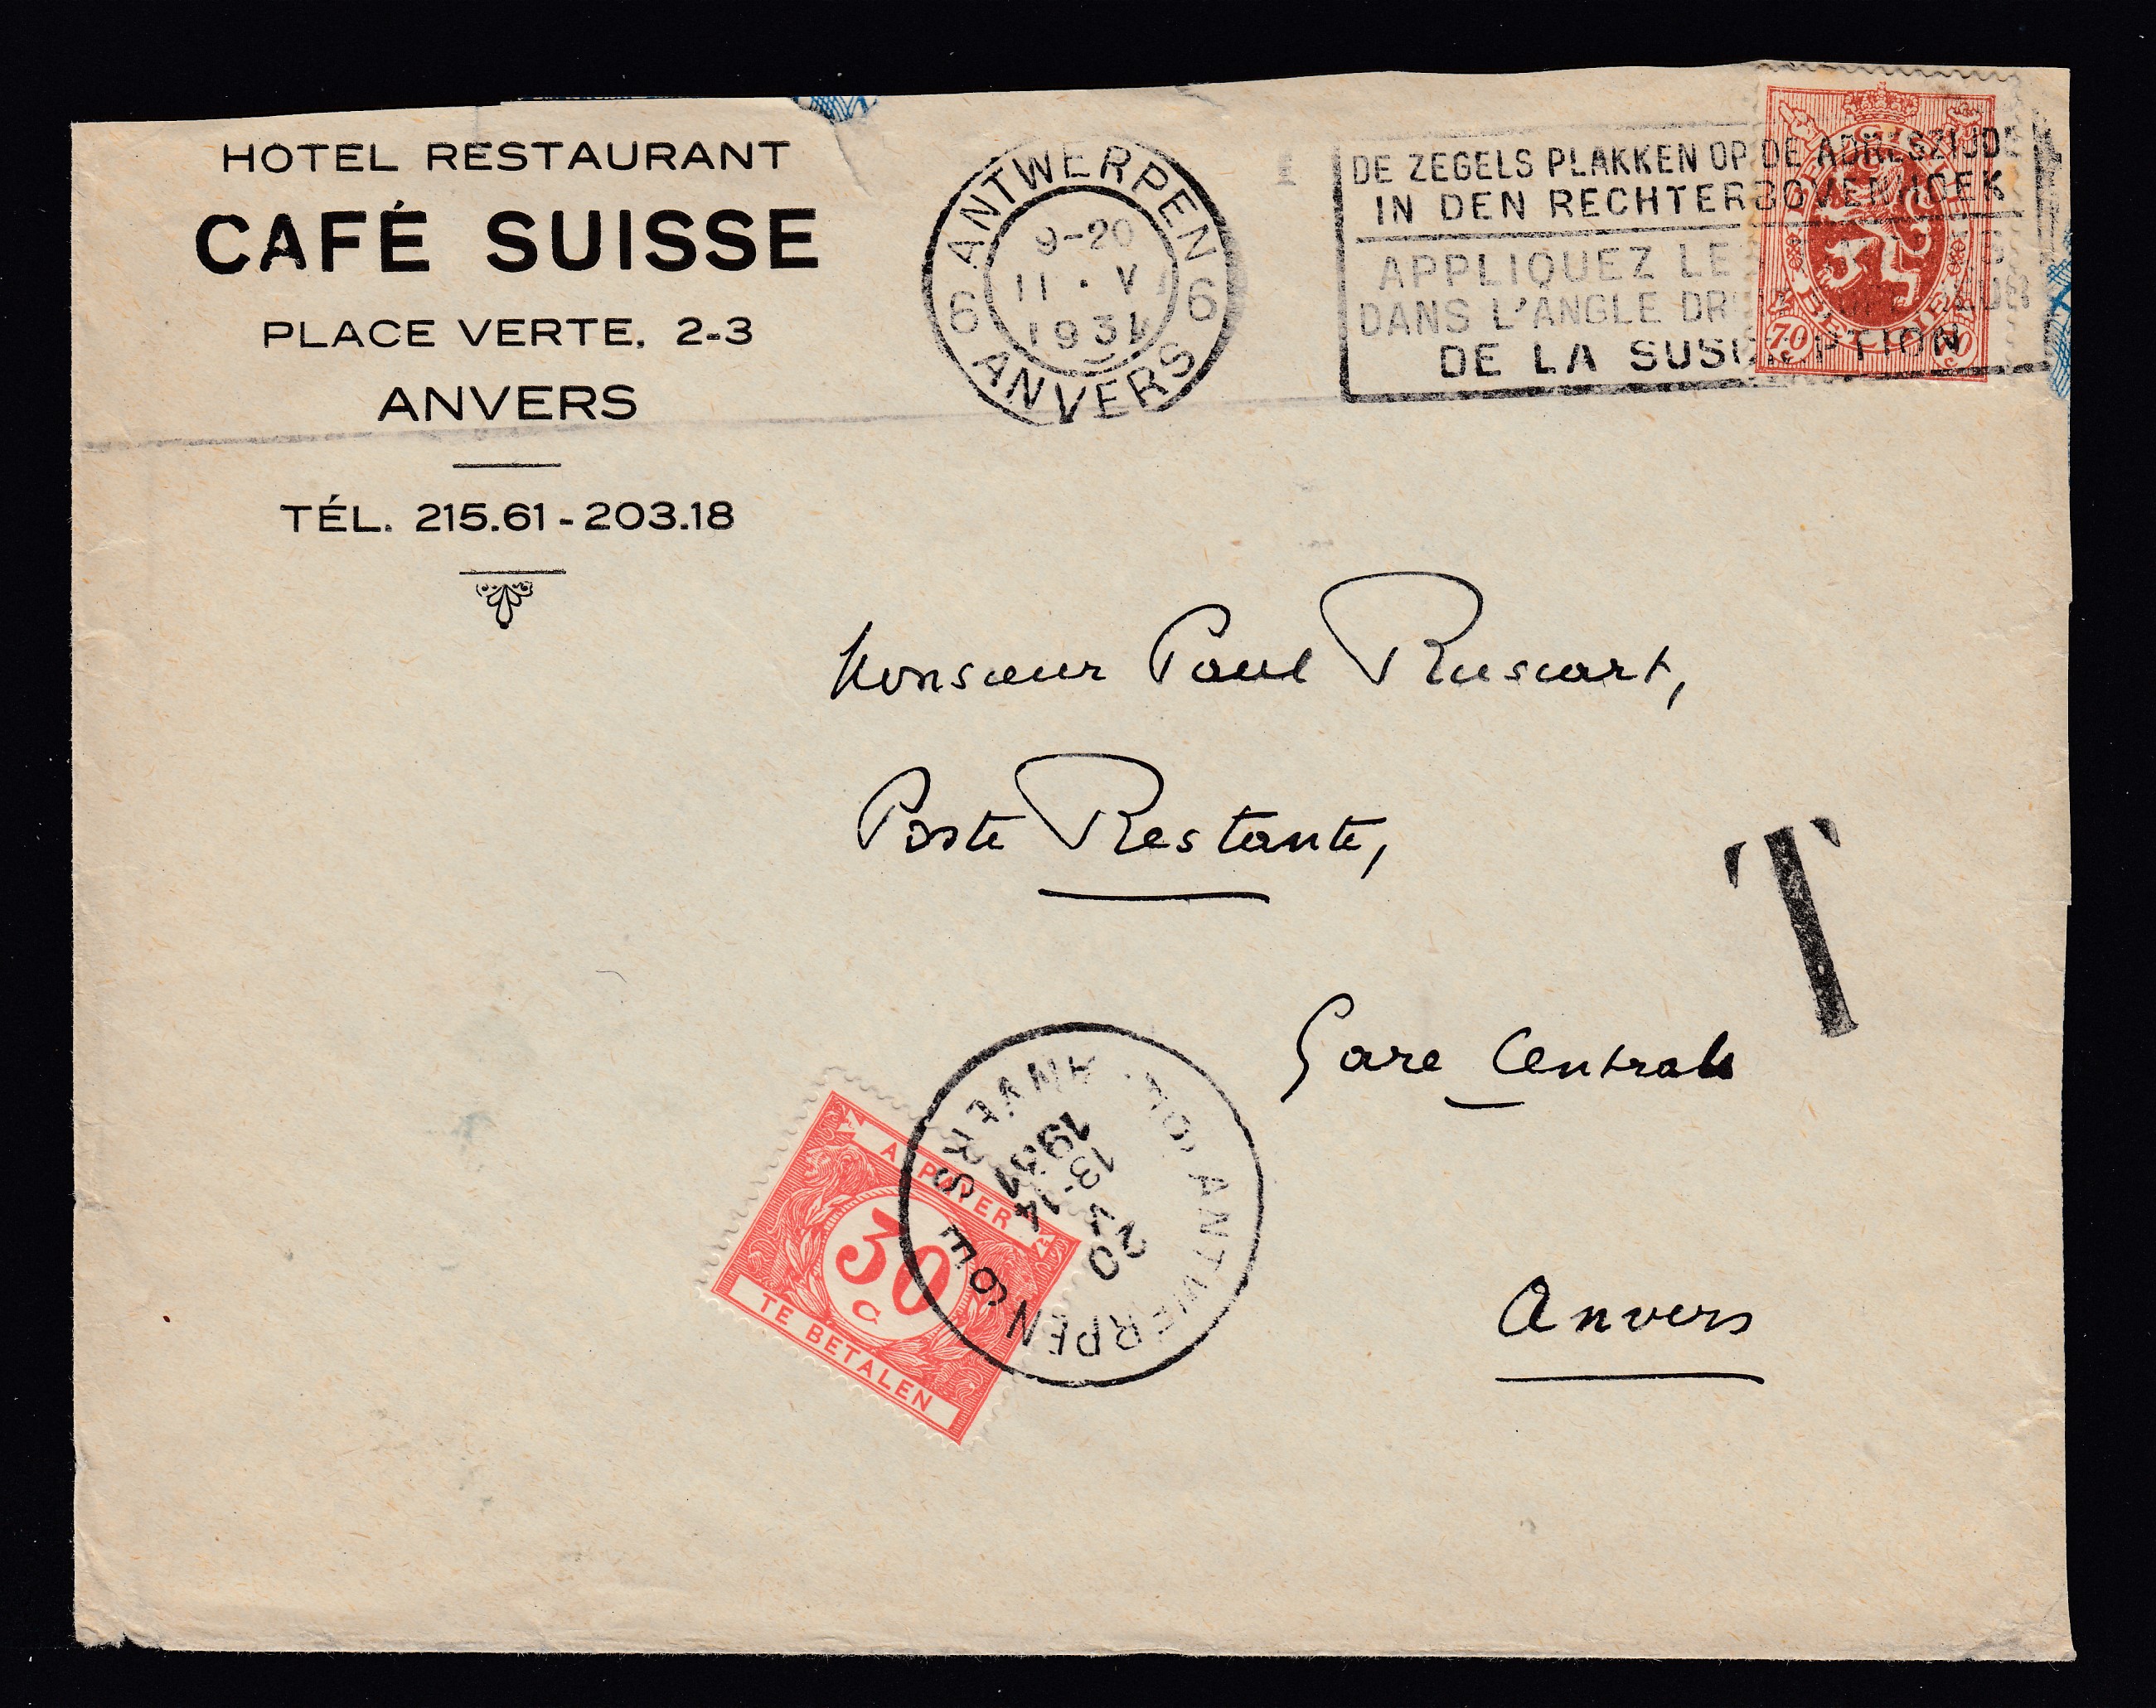 HOTEL RESTAURANT
CAFÉ SUISSE
PLACE VERTE, 2-3
ANVERS
TÉL. 215.61-203.18
ANTWERPEN
9-20
11 · V
1934
6 6
ANVERS
DE ZEGELS PLAKKEN OP DE ADRESZIJDE
IN DEN RECHTERBOVENHOEK
APPLIQUEZ LE
DANS L'ANGLE DR
DE LA SUSCRIPTION
70 c
Monsieur Paul Ruscart,
Poste Restante,
Gare Centrale
Anvers
T
A PAYER
30
c
TE BETALEN
ANTWERPEN 6E
20
V
13-14
1934
ANVERS